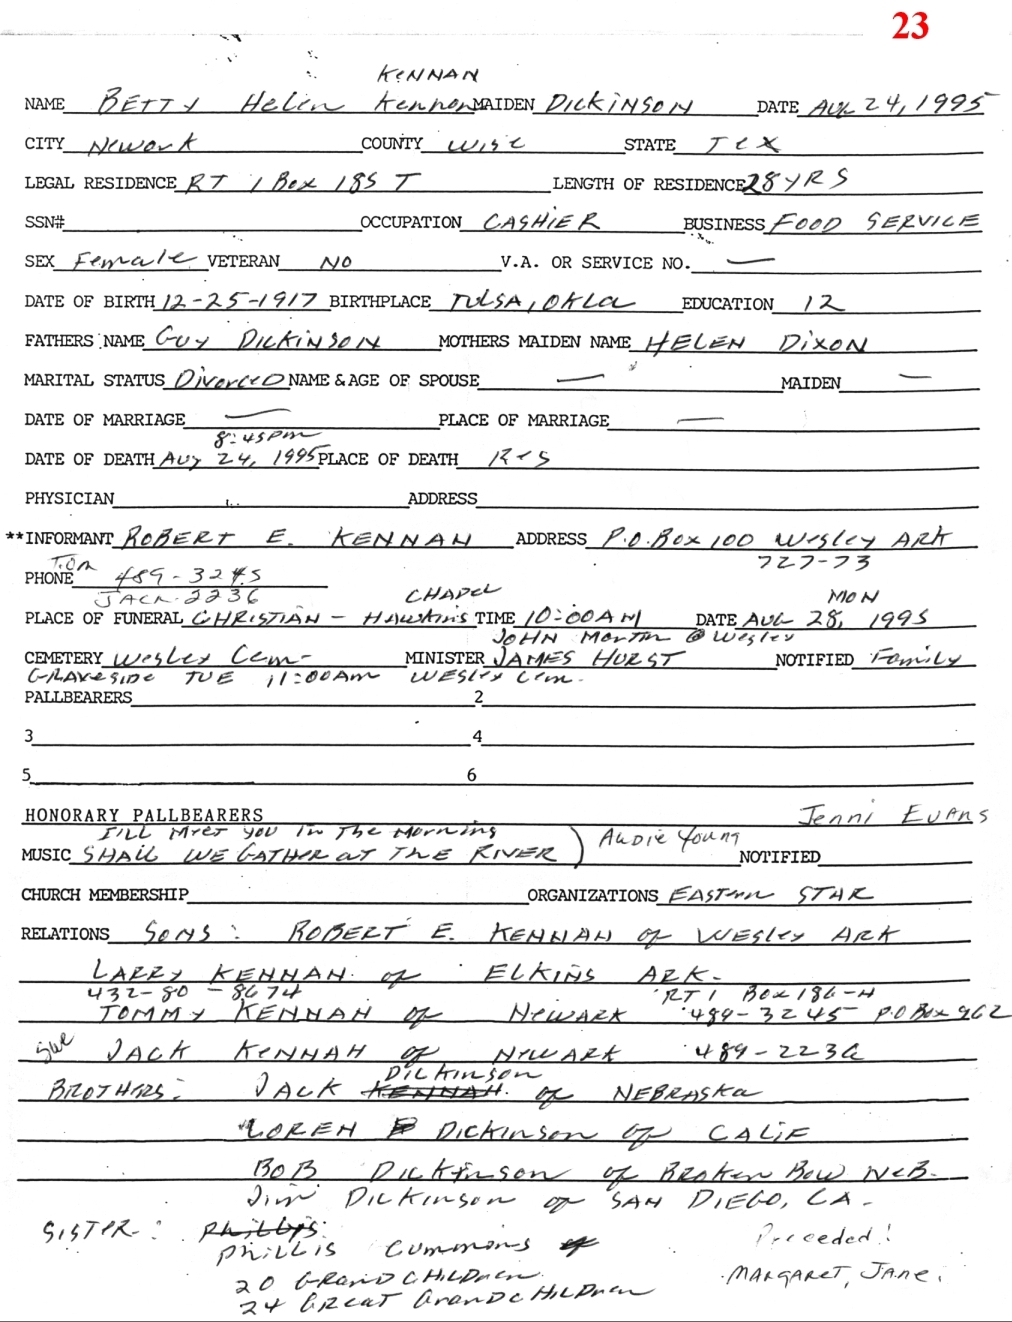 23
KENNAN
NAME BETTY Helen Kennon MAIDEN DICKINSON DATE AUG 24, 1995
CITY Newark COUNTY Wise STATE TEX
LEGAL RESIDENCE RT 1 Box 185 T LENGTH OF RESIDENCE 28 YRS
SSN# OCCUPATION CASHIER BUSINESS FOOD SERVICE
SEX Female VETERAN NO V.A. OR SERVICE NO. —
DATE OF BIRTH 12-25-1917 BIRTHPLACE TULSA, OKLA EDUCATION 12
FATHERS NAME Guy DICKINSON MOTHERS MAIDEN NAME HELEN DIXON
MARITAL STATUS DivorceD NAME & AGE OF SPOUSE — MAIDEN —
DATE OF MARRIAGE — PLACE OF MARRIAGE —
8:45 pm
DATE OF DEATH Aug 24, 1995 PLACE OF DEATH Res
PHYSICIAN ADDRESS
**INFORMANT ROBERT E. KENNAN ADDRESS P.O. Box 100 Wesley ARK
727-73
PHONE 489-3245
JACK 2236 CHAPEL MON
PLACE OF FUNERAL CHRISTIAN - Hawkins TIME 10:00AM DATE AUG 28, 1995
JOHN Martin @ Wesley
CEMETERY Wesley Cem- MINISTER JAMES HURST NOTIFIED Family
GRAVESIDE TUE 11:00AM WESLEY Cem.
PALLBEARERS 2
3 4
5 6
HONORARY PALLBEARERS Jenni Evans
I'LL Meet you in The Morning
MUSIC SHALL WE GATHER at THE RIVER ) AUDIE Young NOTIFIED
CHURCH MEMBERSHIP ORGANIZATIONS EASTERN STAR
RELATIONS SONS: ROBERT E. KENNAN of WESLEY ARK
LARRY KENNAN of ELKINS ARK.
432-80-8674 RT 1 Box 186-H
TOMMY KENNAN of NEWARK 489-3245 P.O Box 962
Sue JACK KENNAN of NEWARK 489-2236
DICKINSON
BROTHERS: JACK KENNAN of NEBRASKA
LOREN DICKINSON of CALIF
BOB DICKINSON of Broken Bow NEB.
Jim DICKINSON of SAN DIEGO, CA.
SISTER: Phillys:
PHILLIS Cummons of
Preceeded!
MARGARET, JANE.
20 GRANDCHILDREN
24 GREAT GrandCHILDren